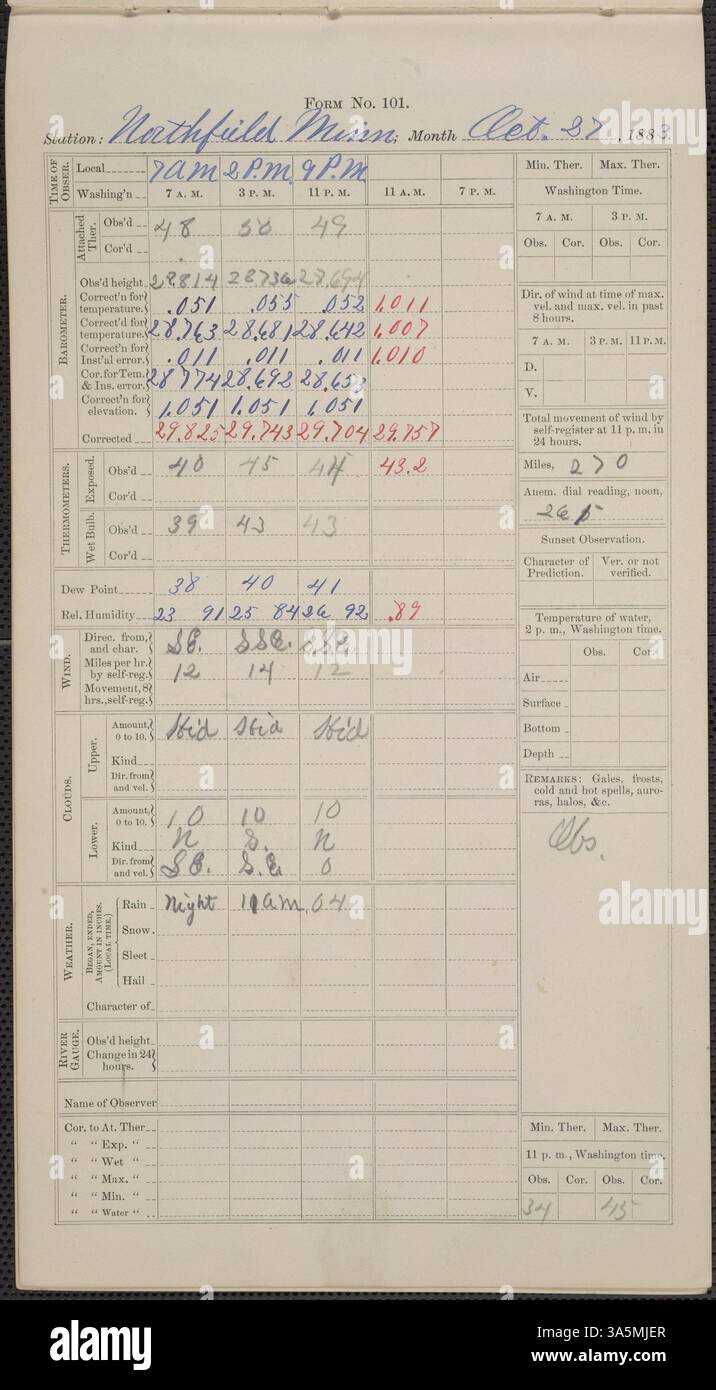 FORM NO. 101.
Station: Northfield Minn; Month Oct. 27, 1883.
TIME OF OBSER. Local 7 a m 2 P.M. 9 P.M
Washing'n 7 A. M. 3 P. M. 11 P. M. 11 A. M. 7 P. M.
BAROMETER.
Attached Ther. Obs'd 48 50 49
Cor'd
Obs'd height 28.814 28.736 28.694
Correct'n for temperature. .051 .055 .052 1,011
Correct'd for temperature. 28.763 28.681 28.642 1,007
Correct'n for Inst'al error. .011 .011 .011 1,010
Cor. for Tem. & Ins. error. 28.774 28.692 28.653
Correct'n for elevation. 1.051 1.051 1.051
Corrected 29.825 29.743 29.704 29.757
THERMOMETERS.
Exposed. Obs'd 40 45 44 43.2
Cor'd
Wet Bulb. Obs'd 39 43 43
Cor'd
Dew Point 38 40 41
Rel. Humidity 23 91 25 84 26 92 .89
WIND.
Direc. from, and char. S E. S S E. S S E.
Miles per hr. by self-reg. 12 14 12
Movement, 8 hrs., self-reg.
CLOUDS.
Upper. Amount, 0 to 10. Hid Hid Hid
Kind
Dir. from and vel.
Lower. Amount, 0 to 10. 10 10 10
Kind N S. N
Dir. from and vel. S E. S. E. 0
WEATHER.
BEGAN, ENDED, AMOUNT IN INCHES. (LOCAL TIME.)
Rain Night 11 a m .04
Snow.
Sleet
Hail
Character of
RIVER GAUGE.
Obs'd height
Change in 24 hours.
Name of Observer
Cor. to At. Ther
“ “ Exp. “
“ “ Wet “
“ “ Max. “
“ “ Min. “
“ “ Water “
Min. Ther. Max. Ther.
Washington Time.
7 A. M. 3 P. M.
Obs. Cor. Obs. Cor.
Dir. of wind at time of max. vel. and max. vel. in past 8 hours.
7 A. M. 3 P. M. 11 P. M.
D.
V.
Total movement of wind by self-register at 11 p. m. in 24 hours.
Miles, 270
Anem. dial reading, noon,
Sunset Observation.
Character of Prediction. Ver. or not verified.
Temperature of water, 2 p. m., Washington time.
Obs. Cor.
Air
Surface
Bottom
Depth
REMARKS: Gales, frosts, cold and hot spells, auroras, halos, &c.
Obs.
Min. Ther. Max. Ther.
11 p. m., Washington time.
Obs. Cor. Obs. Cor.
34 45
alamy
Image ID: 3A5MJER
www.alamy.com